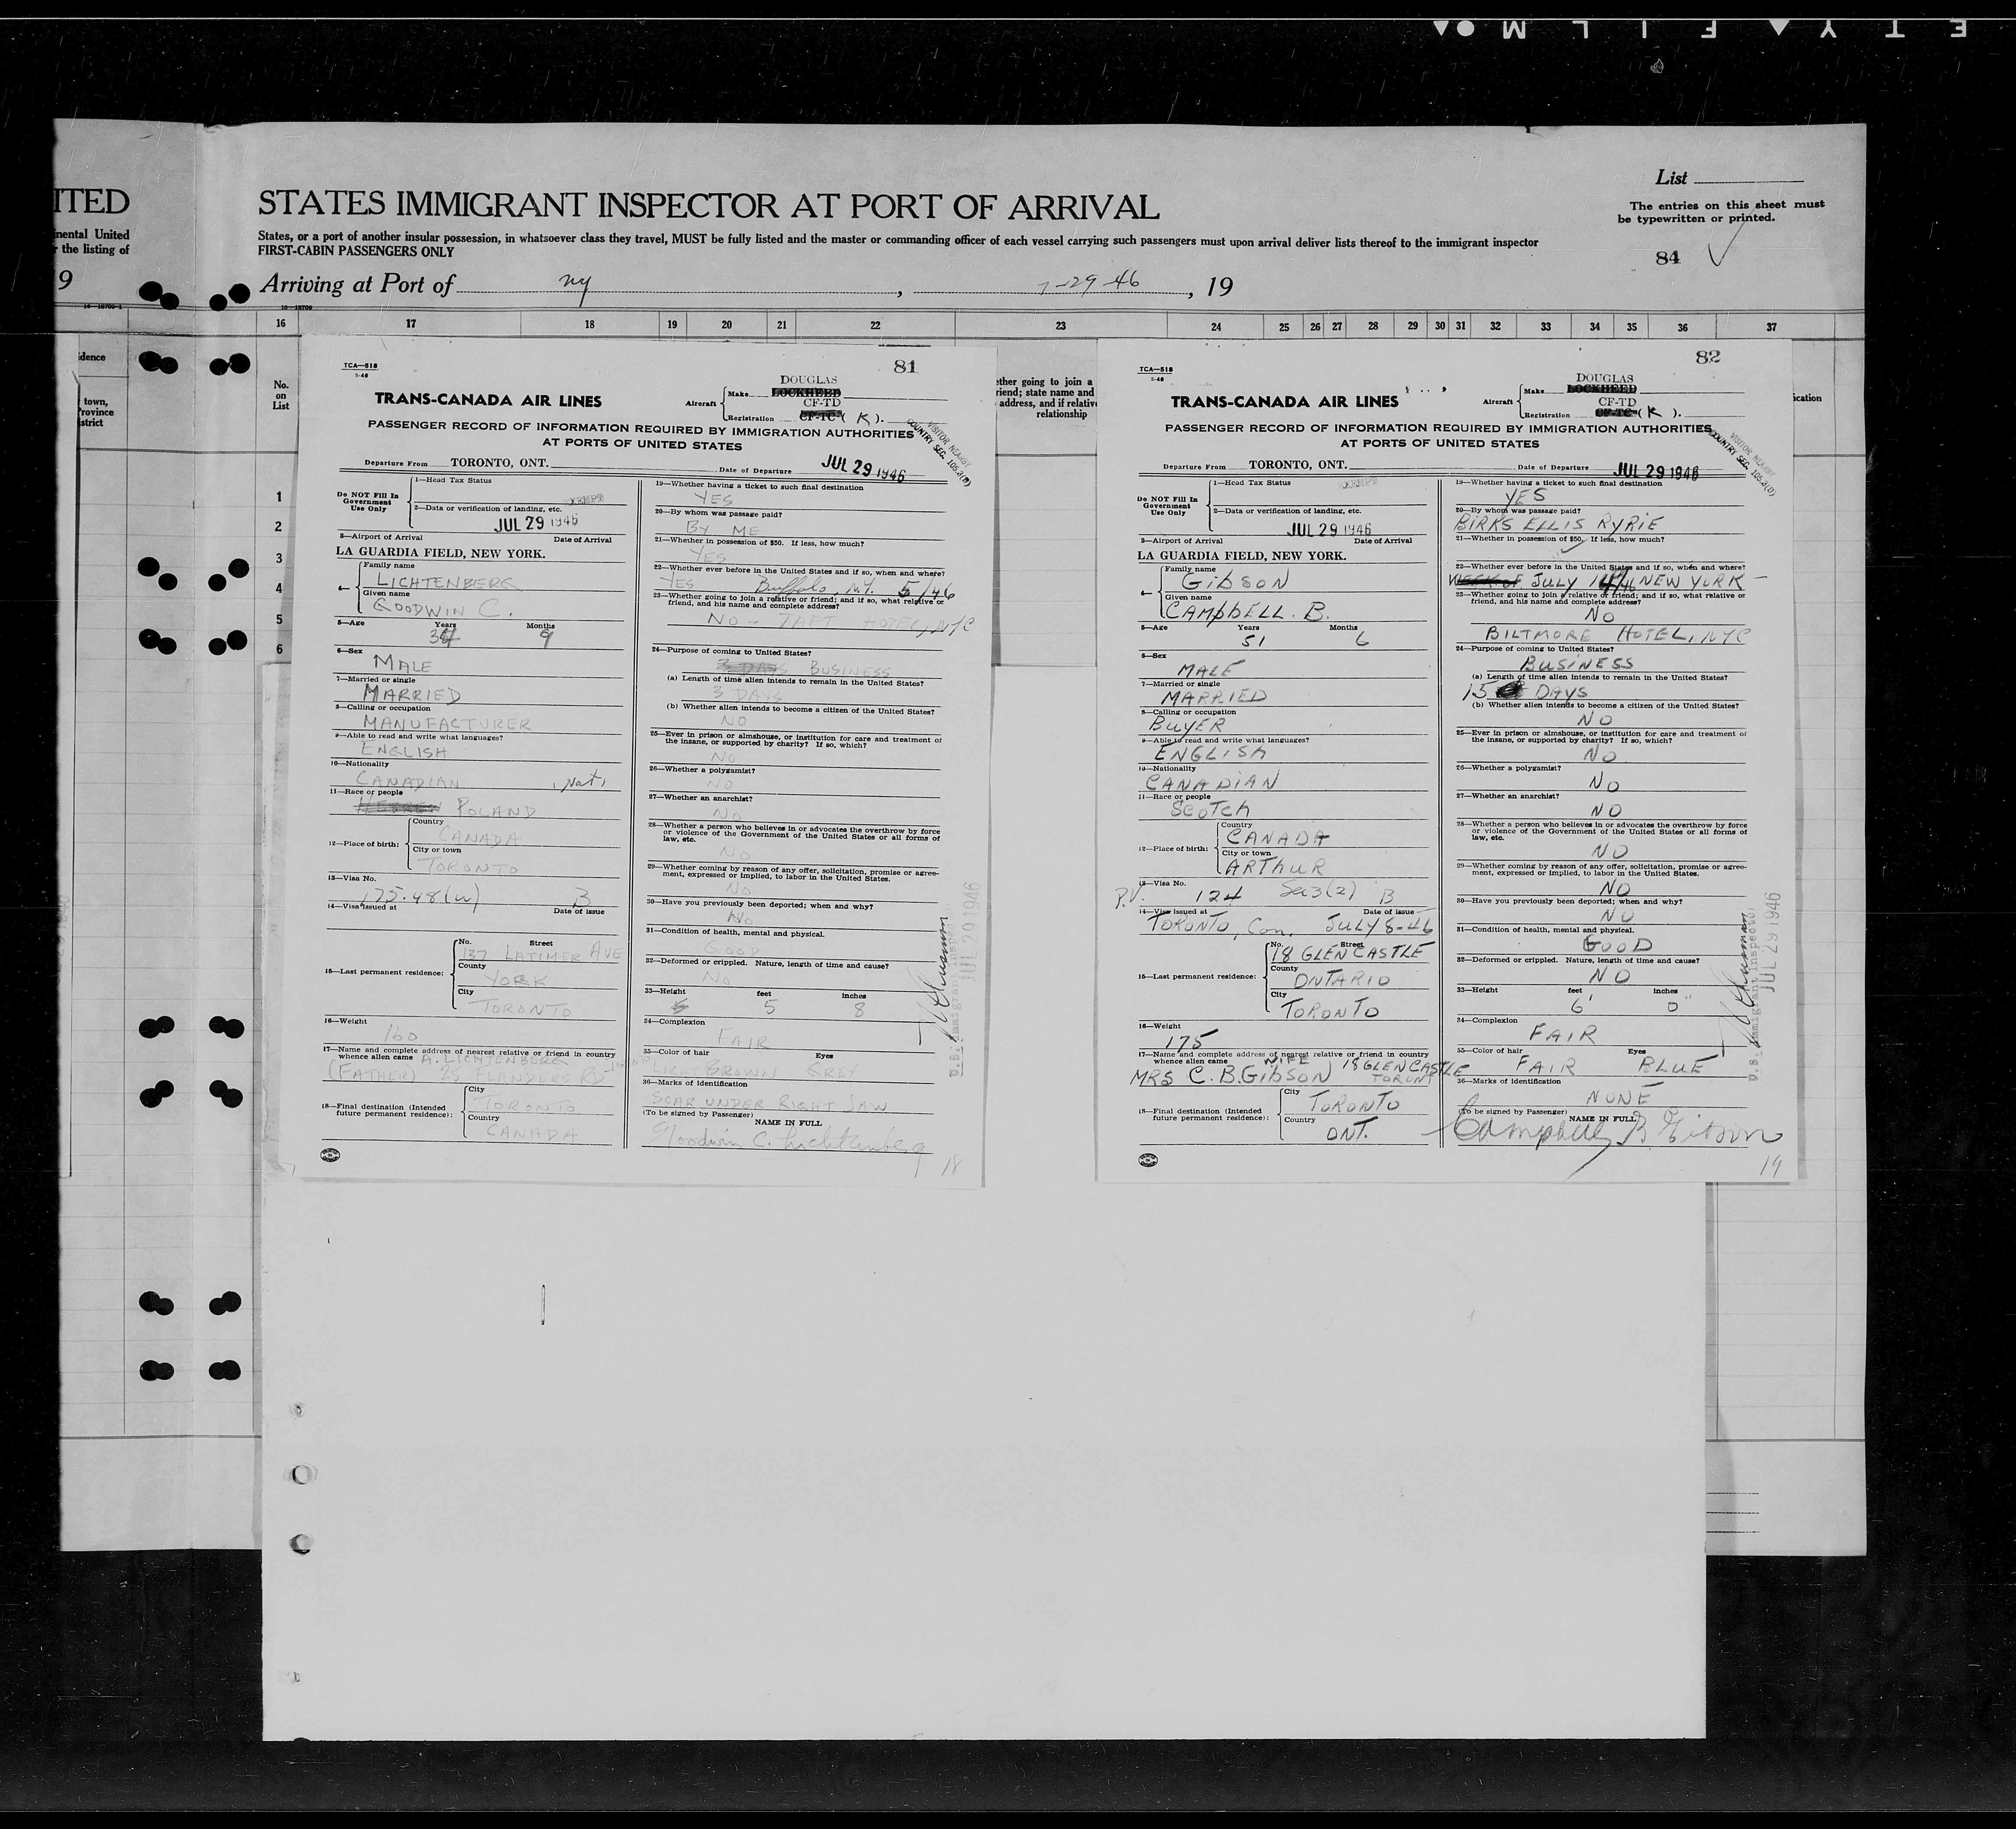 ETY▲FILM●▲
ITED
nental United
r the listing of
9
16—18700-1
idence
town,
Province
strict
STATES IMMIGRANT INSPECTOR AT PORT OF ARRIVAL
States, or a port of another insular possession, in whatsoever class they travel, MUST be fully listed and the master or commanding officer of each vessel carrying such passengers must upon arrival deliver lists thereof to the immigrant inspector
FIRST-CABIN PASSENGERS ONLY
Arriving at Port of ny , 7-29-46 , 19
List
The entries on this sheet must
be typewritten or printed.
84
16 17 18 19 20 21 22 23 24 25 26 27 28 29 30 31 32 33 34 35 36 37
No.
on
List
1
2
3
4
5
6
ether going to join a
riend; state name and
address, and if relative
relationship
ication
TCA—518
5-46
81
TRANS-CANADA AIR LINES
DOUGLAS
Aircraft Make LOCKHEED
CF-TD
Registration CF-TC (K).
PASSENGER RECORD OF INFORMATION REQUIRED BY IMMIGRATION AUTHORITIES
AT PORTS OF UNITED STATES
VISITOR NEARBY
COUNTRY SEC. 105.3(D)
Departure From TORONTO, ONT. Date of Departure JUL 29 1946
Do NOT Fill In
Government
Use Only
1—Head Tax Status
EXEMPT
2—Data or verification of landing, etc.
JUL 29 1946
3—Airport of Arrival Date of Arrival
LA GUARDIA FIELD, NEW YORK.
4— Family name
LICHTENBERG
Given name
GOODWIN C.
5—Age Years Months
34 9
6—Sex
MALE
7—Married or single
MARRIED
8—Calling or occupation
MANUFACTURER
9—Able to read and write what languages?
ENGLISH
10—Nationality
CANADIAN , Nat.
11—Race or people
HEBREW POLAND
12—Place of birth: Country
CANADA
City or town
TORONTO
13—Visa No.
175.48(w) B
14—Visa issued at Date of issue
15—Last permanent residence: No. Street
137 LATIMER AVE
County
YORK
City
TORONTO
16—Weight
160
17—Name and complete address of nearest relative or friend in country
whence alien came A. LICHTENBERG
(FATHER) 25 FLANDERS RD
18—Final destination (Intended
future permanent residence): City
TORONTO
Country
CANADA
19—Whether having a ticket to such final destination
YES
20—By whom was passage paid?
BY ME
21—Whether in possession of $50. If less, how much?
YES
22—Whether ever before in the United States and if so, when and where?
YES Buffalo, N.Y. 5/46
23—Whether going to join a relative or friend; and if so, what relative or
friend, and his name and complete address?
NO — TAFT HOTEL, NYC
24—Purpose of coming to United States?
3 DAYS BUSINESS
(a) Length of time alien intends to remain in the United States?
3 DAYS
(b) Whether alien intends to become a citizen of the United States?
NO
25—Ever in prison or almshouse, or institution for care and treatment of
the insane, or supported by charity? If so, which?
NO
26—Whether a polygamist?
NO
27—Whether an anarchist?
NO
28—Whether a person who believes in or advocates the overthrow by force
or violence of the Government of the United States or all forms of
law, etc.
NO
29—Whether coming by reason of any offer, solicitation, promise or agree-
ment, expressed or implied, to labor in the United States.
NO
30—Have you previously been deported; when and why?
No
31—Condition of health, mental and physical.
GOOD
32—Deformed or crippled. Nature, length of time and cause?
NO
33—Height feet inches
5 8
34—Complexion
FAIR
35—Color of hair Eyes
BROWN GREY
36—Marks of identification
SCAR UNDER RIGHT JAW
(To be signed by Passenger)
NAME IN FULL
Goodwin C. Lichtenberg
18
U.S. Immigrant Inspector
JUL 29 1946
TCA—518
5-46
82
TRANS-CANADA AIR LINES
DOUGLAS
Aircraft Make LOCKHEED
CF-TD
Registration CF-TC (K).
PASSENGER RECORD OF INFORMATION REQUIRED BY IMMIGRATION AUTHORITIES
AT PORTS OF UNITED STATES
VISITOR NEARBY
COUNTRY SEC. 105.3(D)
Departure From TORONTO, ONT. Date of Departure JUL 29 1946
Do NOT Fill In
Government
Use Only
1—Head Tax Status
EXEMPT
2—Data or verification of landing, etc.
JUL 29 1946
3—Airport of Arrival Date of Arrival
LA GUARDIA FIELD, NEW YORK.
4— Family name
GibSON
Given name
CAMPbELL. B.
5—Age Years Months
51 6
6—Sex
MALE
7—Married or single
MARRIED
8—Calling or occupation
BUYER
9—Able to read and write what languages?
ENGLISH
10—Nationality
CANADIAN
11—Race or people
SCOTCH
12—Place of birth: Country
CANADA
City or town
ARTHUR
13—Visa No.
P.V. 124 Sec 3(2) B
14—Visa issued at Date of issue
TORONTO, Can. JULY 8-46
15—Last permanent residence: No. Street
18 GLENCASTLE
County
ONTARIO
City
TORONTO
16—Weight
175
17—Name and complete address of nearest relative or friend in country
whence alien came WIFE 18 GLENCASTLE
MRS C.B. GibSON TORONT
18—Final destination (Intended
future permanent residence): City
TORONTO
Country
ONT.
19—Whether having a ticket to such final destination
YES
20—By whom was passage paid?
BIRKS ELLIS RYRIE
21—Whether in possession of $50. If less, how much?
22—Whether ever before in the United States and if so, when and where?
WEEK OF JULY 14/46 NEW YORK —
23—Whether going to join a relative or friend; and if so, what relative or
friend, and his name and complete address?
NO
BILTMORE HOTEL, NYC
24—Purpose of coming to United States?
BUSINESS
(a) Length of time alien intends to remain in the United States?
15 DAYS
(b) Whether alien intends to become a citizen of the United States?
NO
25—Ever in prison or almshouse, or institution for care and treatment of
the insane, or supported by charity? If so, which?
NO
26—Whether a polygamist?
NO
27—Whether an anarchist?
NO
28—Whether a person who believes in or advocates the overthrow by force
or violence of the Government of the United States or all forms of
law, etc.
NO
29—Whether coming by reason of any offer, solicitation, promise or agree-
ment, expressed or implied, to labor in the United States.
NO
30—Have you previously been deported; when and why?
NO
31—Condition of health, mental and physical.
GOOD
32—Deformed or crippled. Nature, length of time and cause?
NO
33—Height feet inches
6' 0"
34—Complexion
FAIR
35—Color of hair Eyes
FAIR BLUE
36—Marks of identification
NONE
(To be signed by Passenger)
NAME IN FULL
Campbell B Gibson
19
U.S. Immigrant Inspector
JUL 29 1946